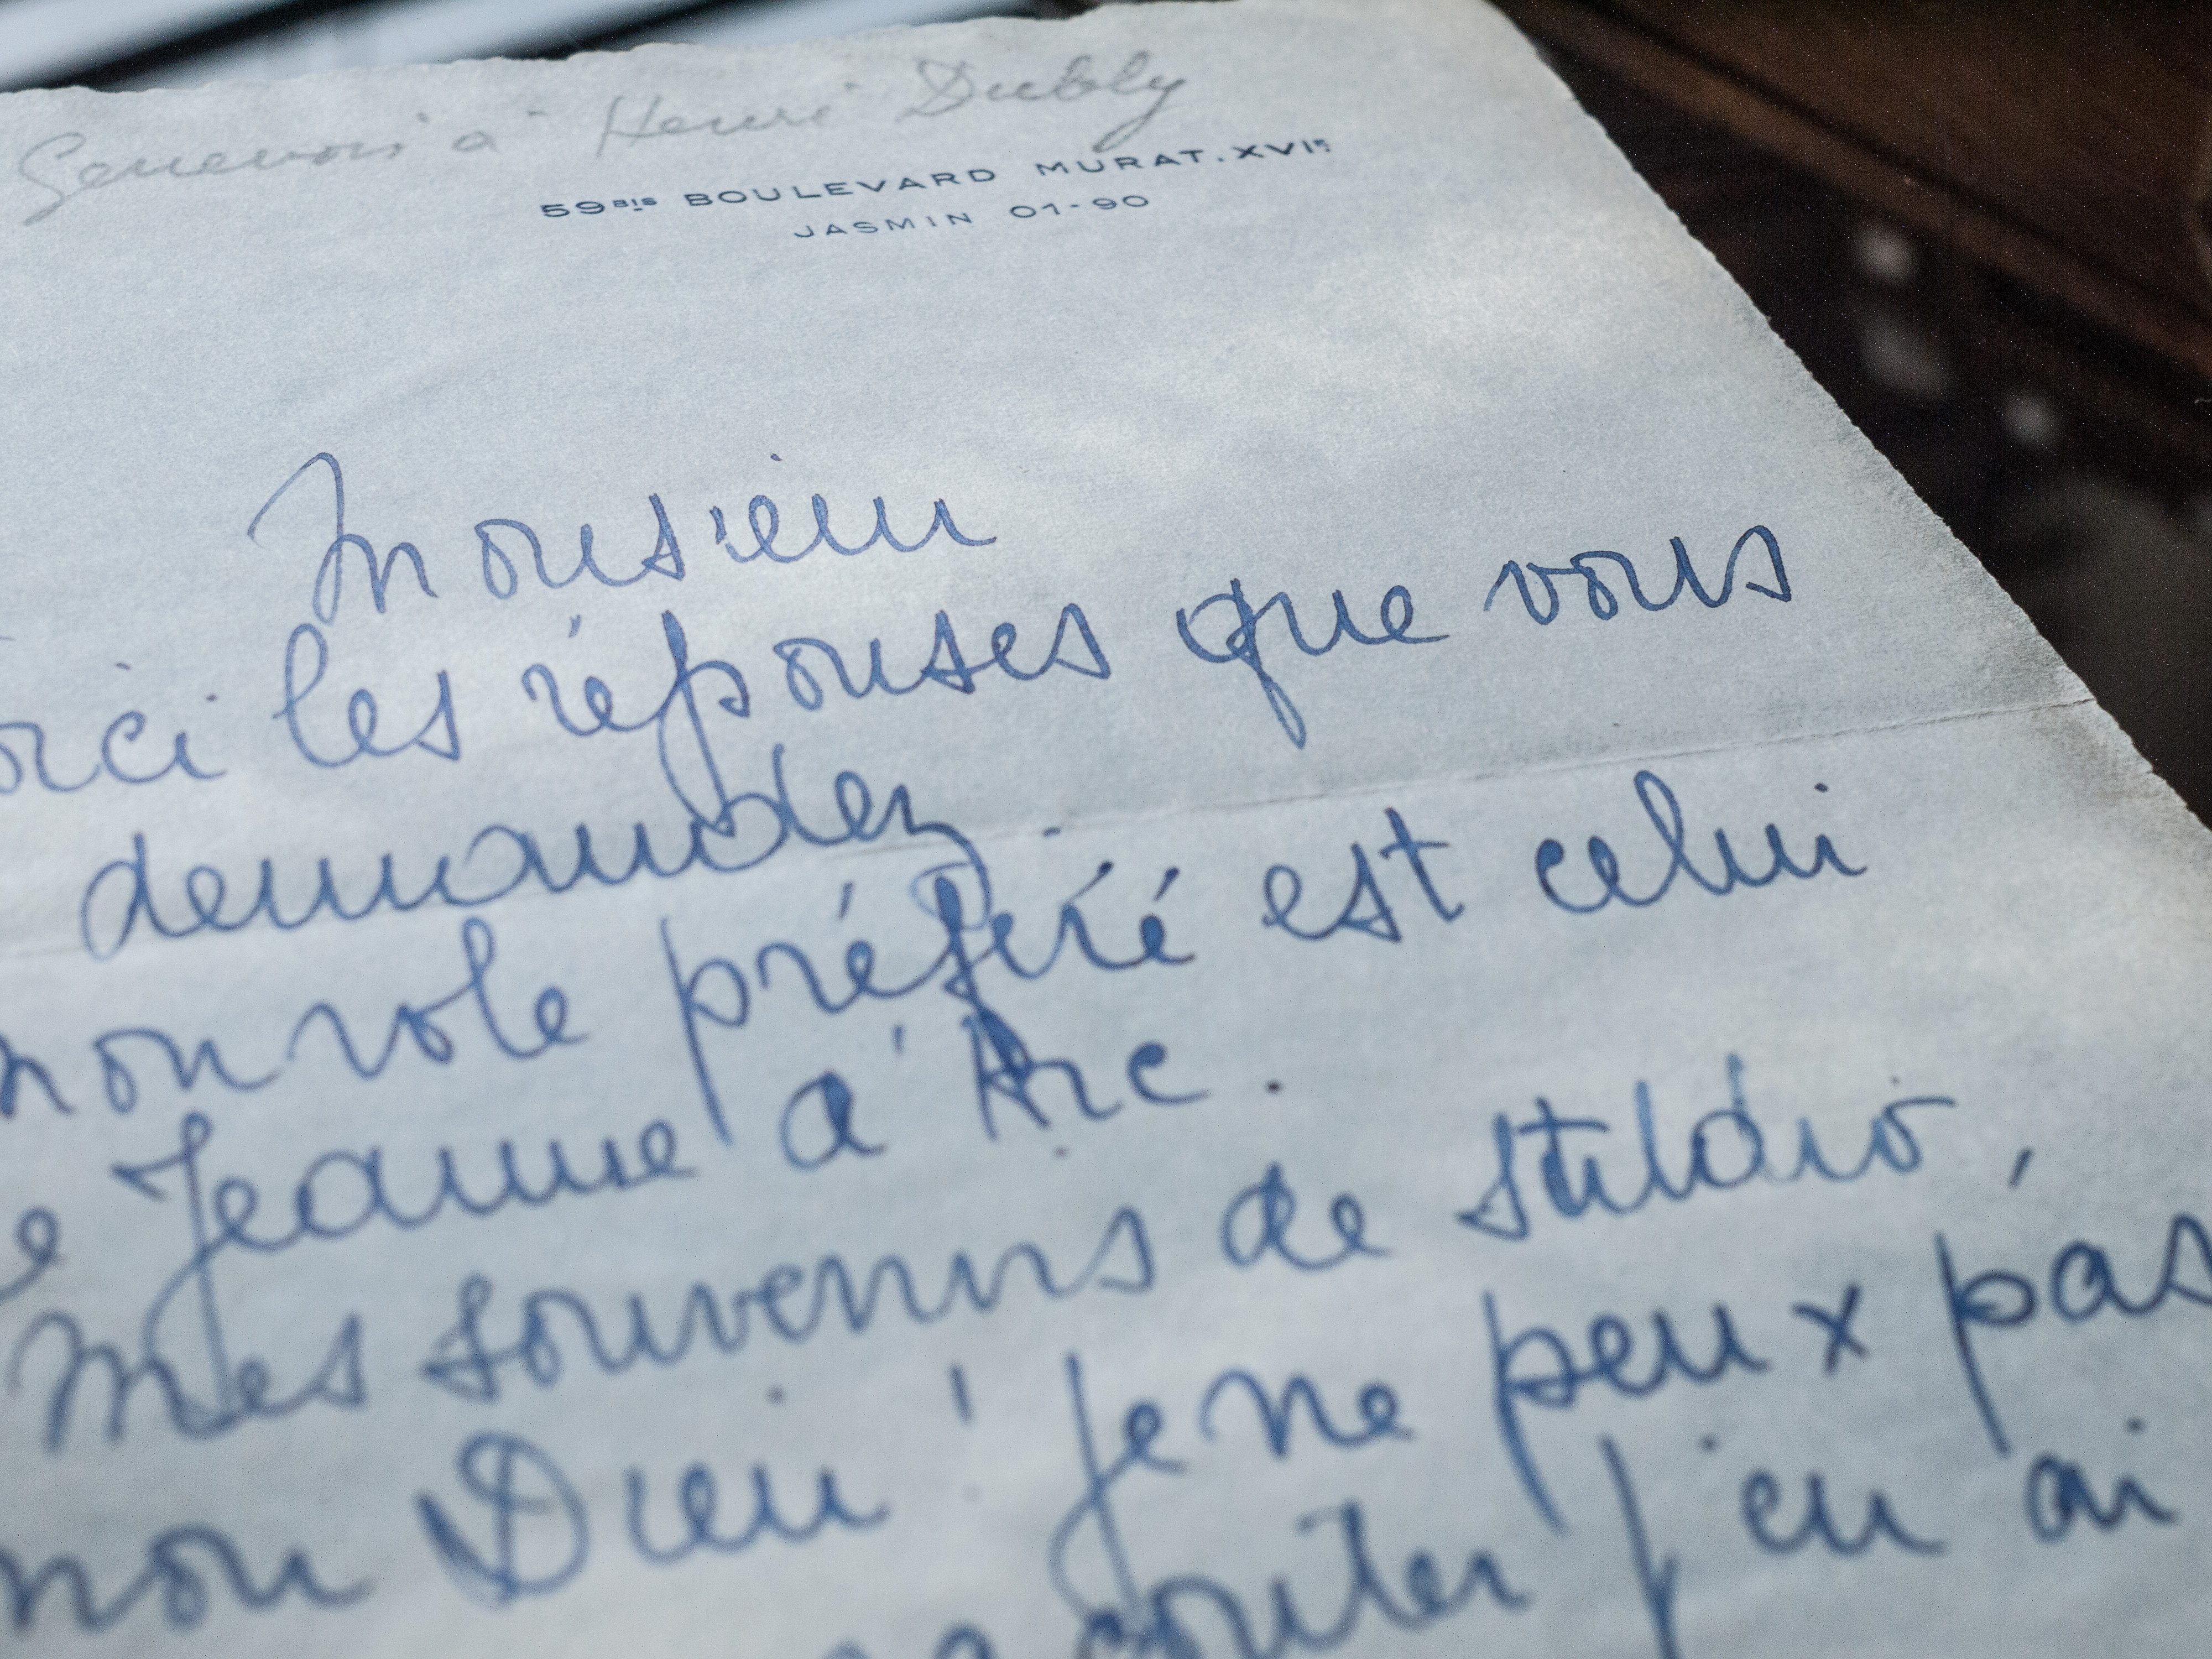 Genevois à Henri Dubly
59BIS BOULEVARD MURAT.XVIE
JASMIN 01-90
Monsieur
oici les réponses que vous
demandez.
mon role préféré est celui
e Jeanne d'Arc.
Mes souvenirs de studio,
mon Dieu! Je ne peux pas
conter j'en ai